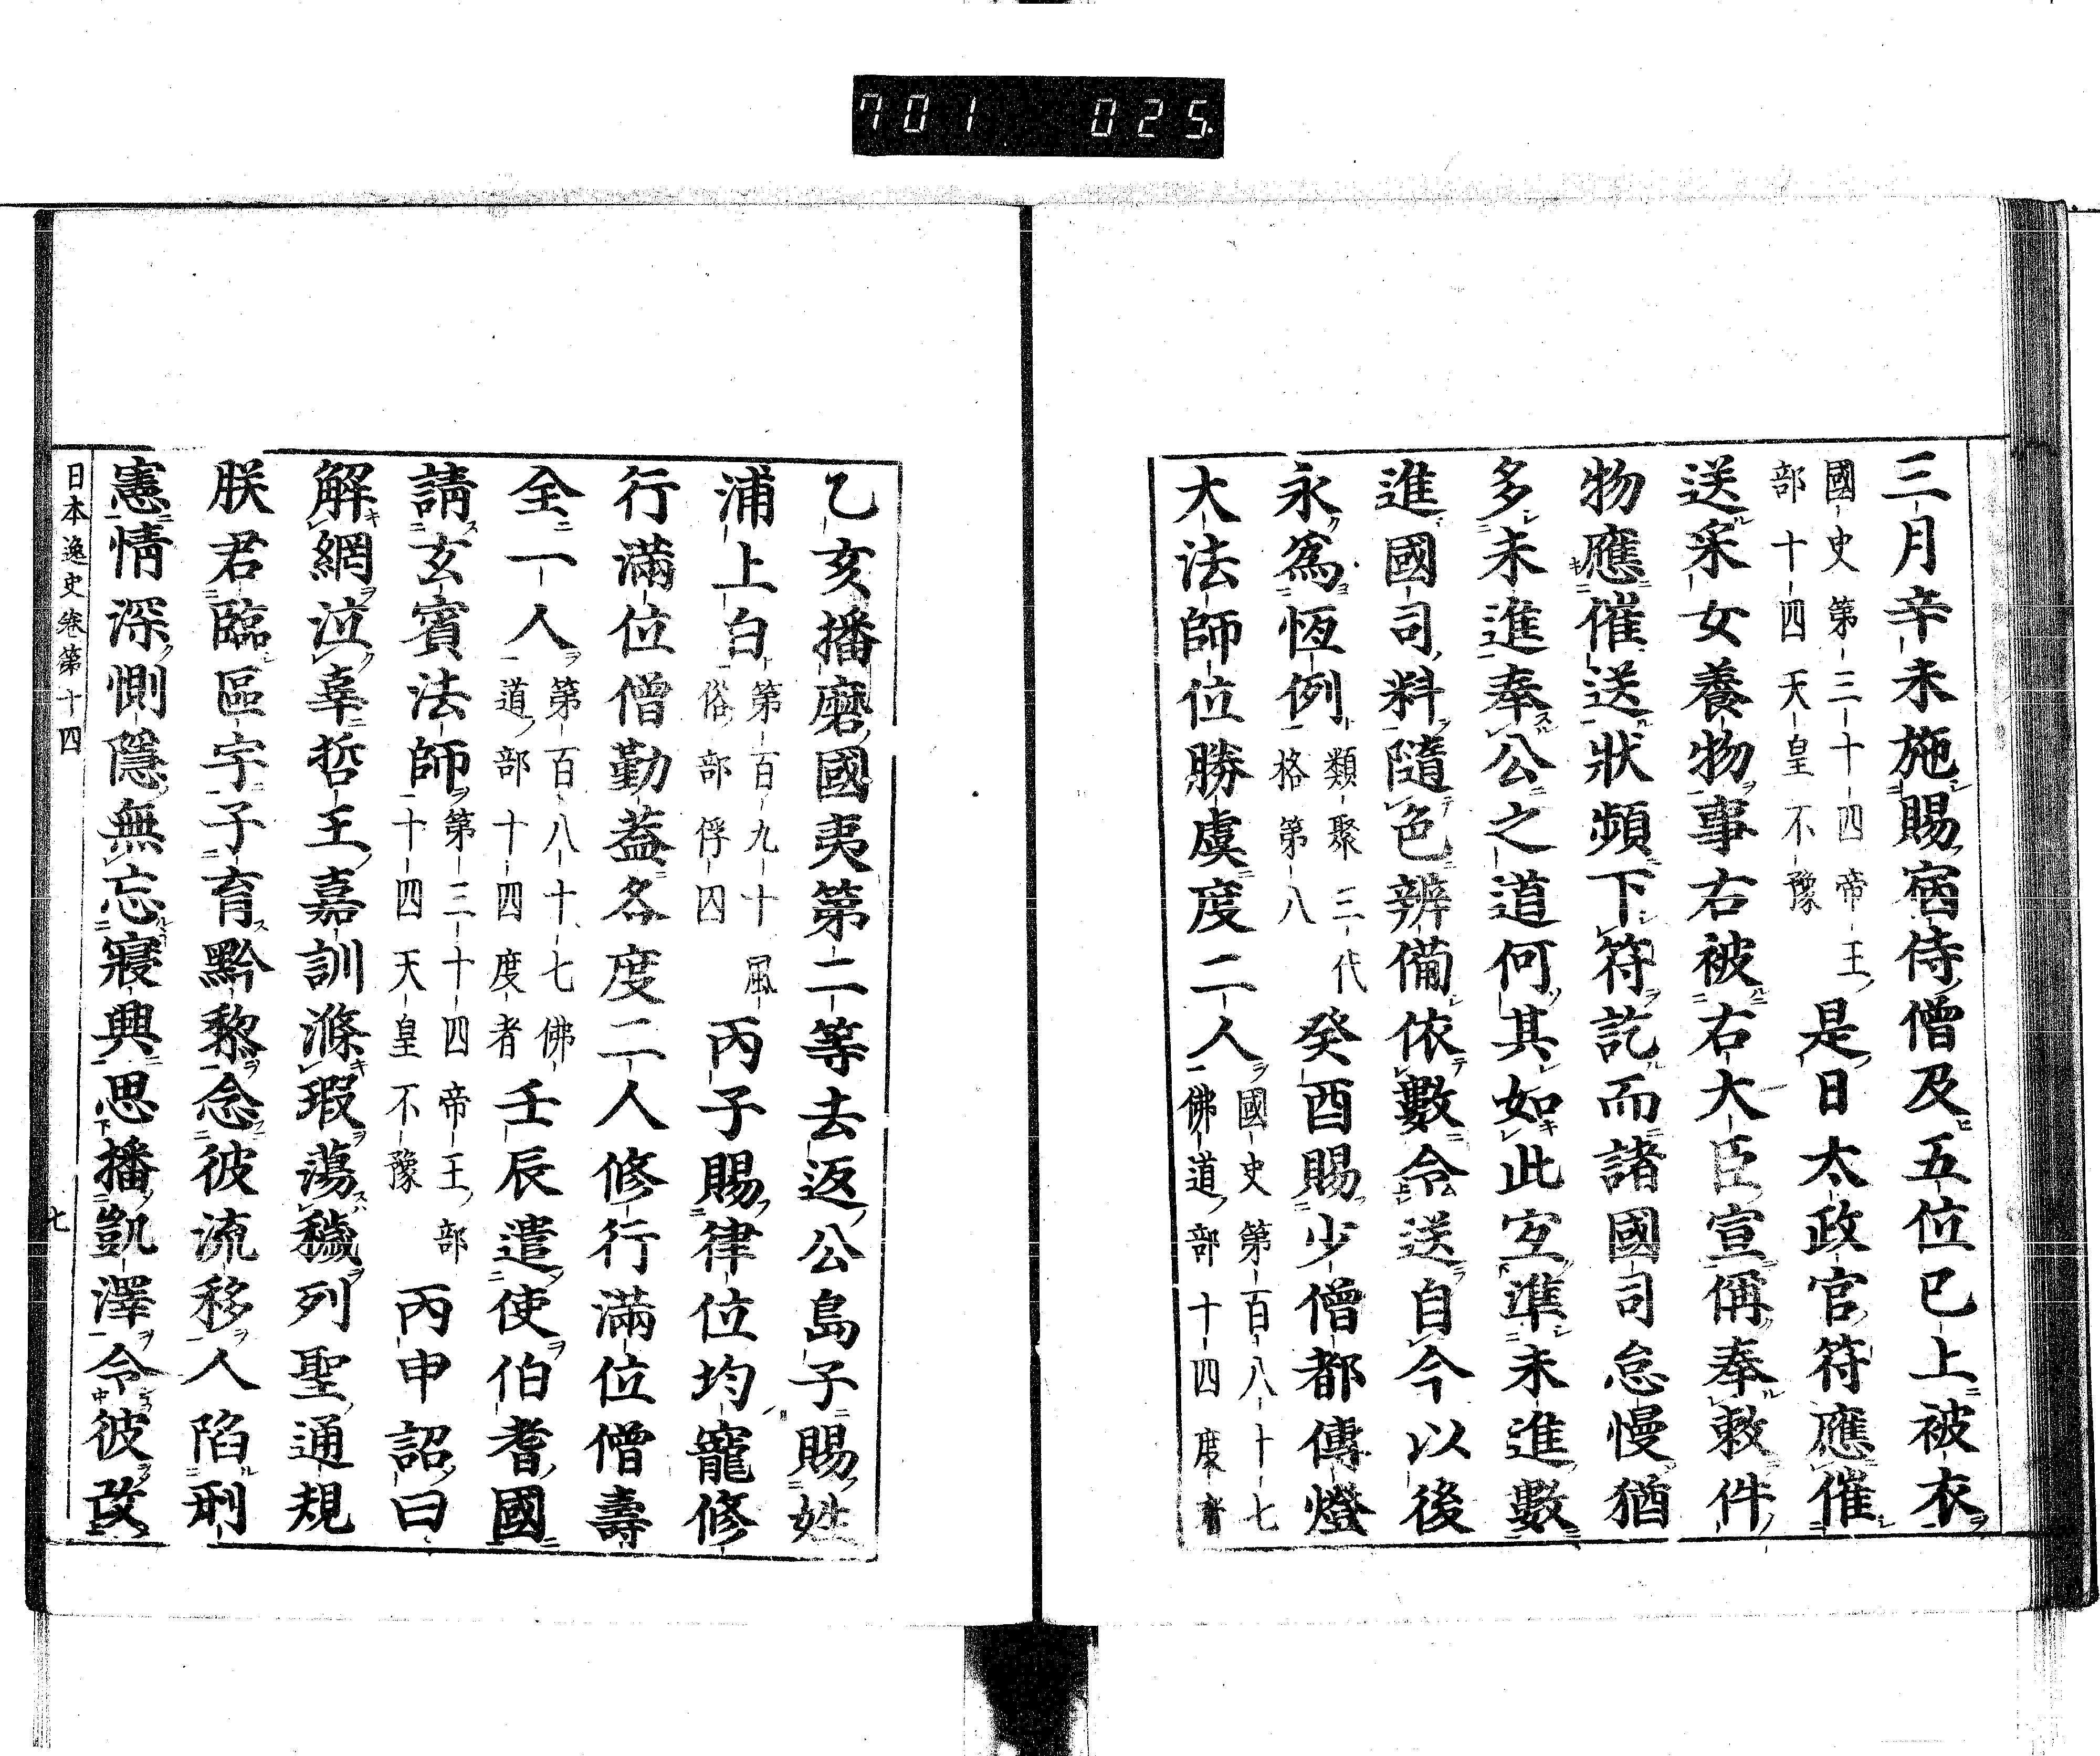 701 025
三月辛未施賜宿侍僧及五位已上被衣
國史第三十四帝王
部十四天皇不豫
是日太政官符應催
送采女養物事右被右大臣宣偁奉敕件
物應催送狀頻下符訖而諸國司怠慢猶
多未進奉公之道何其如此宜準未進數
進國司料隨色辨備依數令送自今以後
永爲恆例
類聚三代
格第八
癸酉賜少僧都傳燈
大法師位勝虞度二人
國史第百八十七
佛道部十四度者
乙亥播磨國夷第二等去返公島子賜姓
浦上臼
第百九十風
俗部俘囚
丙子賜律位均寵修
行滿位僧勤葢各度二人修行滿位僧壽
全一人
第百八十七佛
道部十四度者
壬辰遣使伯耆國
請玄賓法師
第三十四帝王部
十四天皇不豫
丙申詔曰
解網泣辜哲王嘉訓滌瑕蕩穢列聖通規
朕君臨區宇子育黔黎念彼流移人陷刑
憲情深惻隱無忘寢興思播凱澤令彼改
日本逸史卷第十四
七